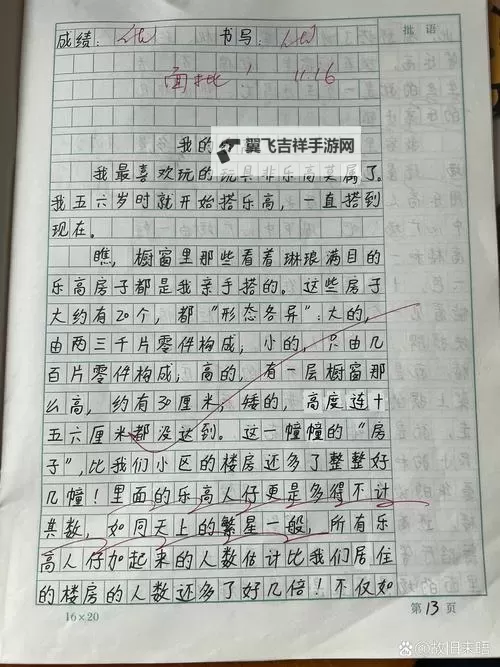 成绩： 书写： 批语
面批！ 11.16
我的
翼飞吉祥手游网
我最喜欢玩的玩具非乐高莫属了。
我五六岁时就开始搭乐高，一直搭到
现在。
瞧，橱窗里那些看着琳琅满目的
乐高房子都是我亲手搭的。这些房子
大约有20个，都“形态各异”：大的，
由两三千片零件构成；小的，只由几
百片零件构成；高的，有一层橱窗那
么高，约有30厘米，矮的，高度连十
五六厘米都没达到。这一幢幢的“房
子”，比我们小区的楼房还多了整整好
几幢！里面的乐高人仔更是多得不计
其数，如同天上的繁星一般，所有乐
高人仔加起来的人数估计比我们居住
的楼房的人数还多了好几倍！不仅如
16×20
第13页
@故旧未晤